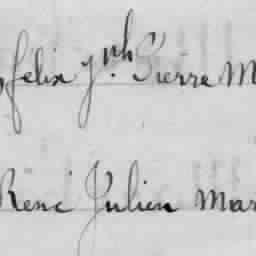 felix Jph. Pierre M
René Julien Mar